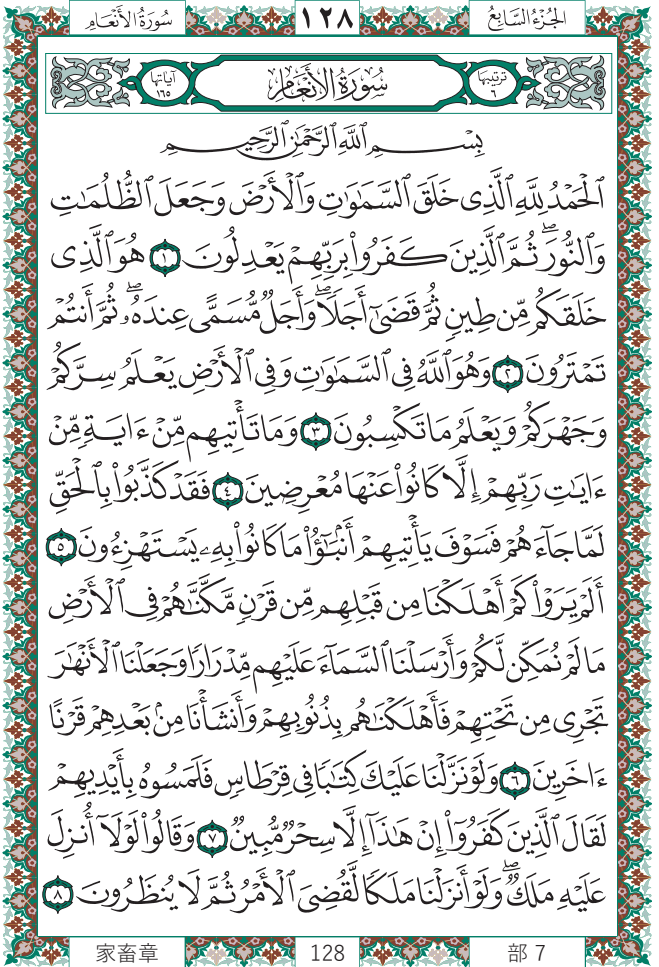 الجُزْءُ السَّابِعُ
١٢٨
سُورَةُ الأَنْعَامِ
ترتيبها ٦
سُورَةُ الأَنْعَامِ
آياتها ١٦٥
بِسْمِ ٱللَّهِ ٱلرَّحْمَٰنِ ٱلرَّحِيمِ
ٱلْحَمْدُ لِلَّهِ ٱلَّذِى خَلَقَ ٱلسَّمَٰوَٰتِ وَٱلْأَرْضَ وَجَعَلَ ٱلظُّلُمَٰتِ
وَٱلنُّورَۖ ثُمَّ ٱلَّذِينَ كَفَرُوا۟ بِرَبِّهِمْ يَعْدِلُونَ ١ هُوَ ٱلَّذِى
خَلَقَكُم مِّن طِينٍ ثُمَّ قَضَىٰٓ أَجَلًاۖ وَأَجَلٌ مُّسَمًّى عِندَهُۥۖ ثُمَّ أَنتُمْ
تَمْتَرُونَ ٢ وَهُوَ ٱللَّهُ فِى ٱلسَّمَٰوَٰتِ وَفِى ٱلْأَرْضِ يَعْلَمُ سِرَّكُمْ
وَجَهْرَكُمْ وَيَعْلَمُ مَا تَكْسِبُونَ ٣ وَمَا تَأْتِيهِم مِّنْ ءَايَةٍ مِّنْ
ءَايَٰتِ رَبِّهِمْ إِلَّا كَانُوا۟ عَنْهَا مُعْرِضِينَ ٤ فَقَدْ كَذَّبُوا۟ بِٱلْحَقِّ
لَمَّا جَآءَهُمْ فَسَوْفَ يَأْتِيهِمْ أَنۢبَٰٓؤُا۟ مَا كَانُوا۟ بِهِۦ يَسْتَهْزِءُونَ ٥
أَلَمْ يَرَوْا۟ كَمْ أَهْلَكْنَا مِن قَبْلِهِم مِّن قَرْنٍ مَّكَّنَّٰهُمْ فِى ٱلْأَرْضِ
مَا لَمْ نُمَكِّن لَّكُمْ وَأَرْسَلْنَا ٱلسَّمَآءَ عَلَيْهِم مِّدْرَارًا وَجَعَلْنَا ٱلْأَنْهَٰرَ
تَجْرِى مِن تَحْتِهِمْ فَأَهْلَكْنَٰهُم بِذُنُوبِهِمْ وَأَنشَأْنَا مِنۢ بَعْدِهِمْ قَرْنًا
ءَاخَرِينَ ٦ وَلَوْ نَزَّلْنَا عَلَيْكَ كِتَٰبًا فِى قِرْطَاسٍ فَلَمَسُوهُ بِأَيْدِيهِمْ
لَقَالَ ٱلَّذِينَ كَفَرُوٓا۟ إِنْ هَٰذَآ إِلَّا سِحْرٌ مُّبِينٌ ٧ وَقَالُوا۟ لَوْلَآ أُنزِلَ
عَلَيْهِ مَلَكٌۖ وَلَوْ أَنزَلْنَا مَلَكًا لَّقُضِىَ ٱلْأَمْرُ ثُمَّ لَا يُنظَرُونَ ٨
家畜章
128
部 7